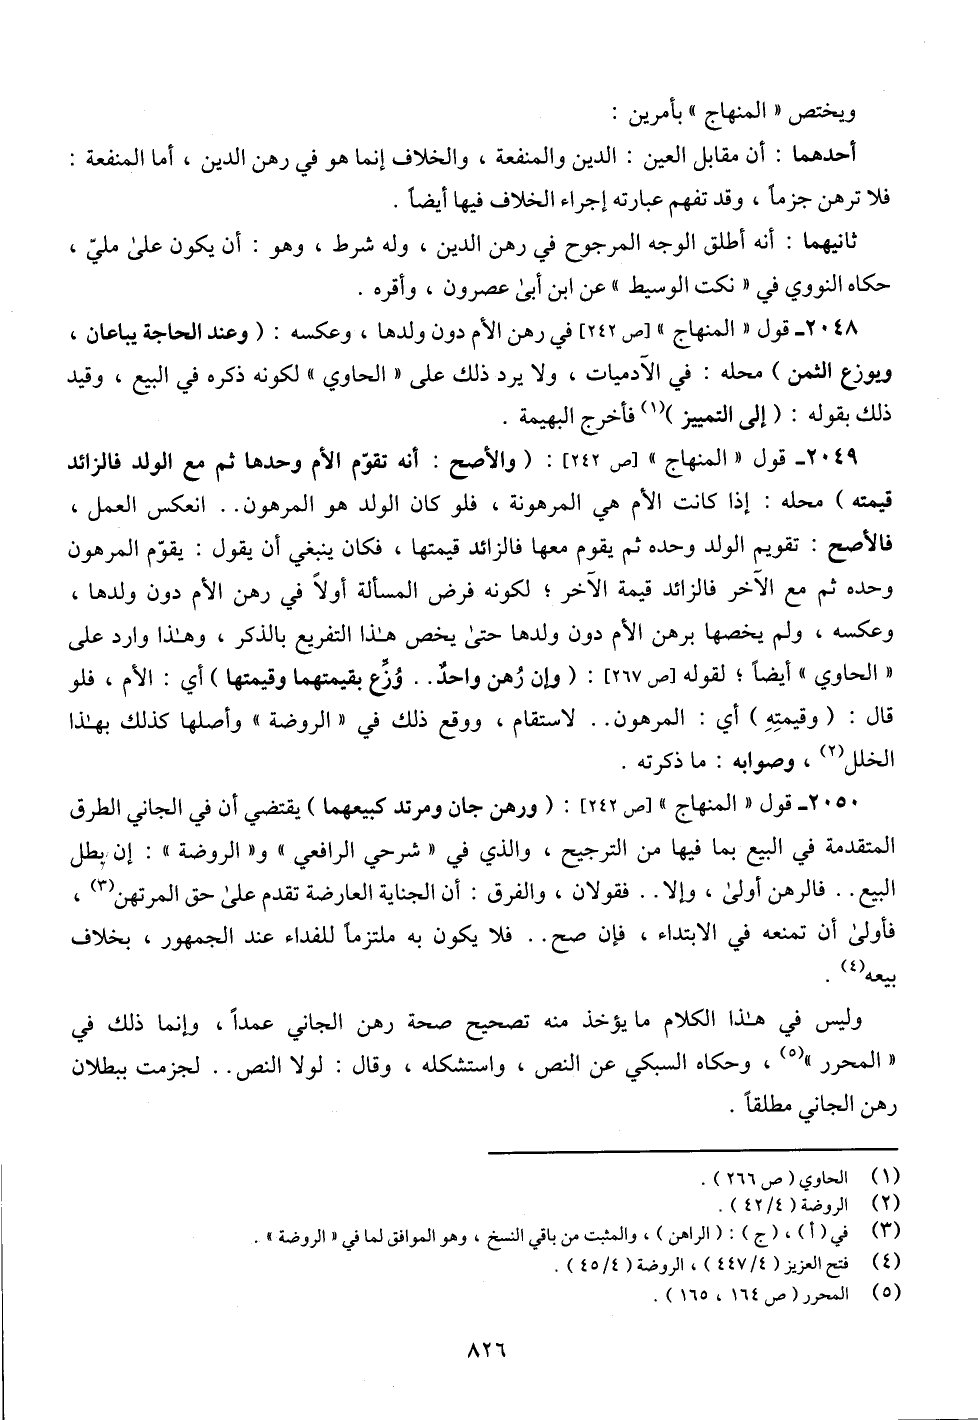 ويختص « المنهاج » بأمرين :
أحدهما : أن مقابل العين : الدين والمنفعة ، والخلاف إنما هو في رهن الدين ، أما المنفعة :
فلا ترهن جزماً ، وقد تفهم عبارته إجراء الخلاف فيها أيضاً .
ثانيهما : أنه أطلق الوجه المرجوح في رهن الدين ، وله شرط ، وهو : أن يكون علىٰ مليّ ،
حكاه النووي في « نكت الوسيط » عن ابن أبىٰ عصرون ، وأقره .
٢٠٤٨ـ قول « المنهاج » [ص ٢٤٢] في رهن الأم دون ولدها ، وعكسه : ( وعند الحاجة يباعان ،
ويوزع الثمن ) محله : في الآدميات ، ولا يرد ذلك على « الحاوي » لكونه ذكره في البيع ، وقيد
ذلك بقوله : ( إلى التمييز )(١) فأخرج البهيمة .
٢٠٤٩ـ قول « المنهاج » [ص ٢٤٢] : ( والأصح : أنه تقوّم الأم وحدها ثم مع الولد فالزائد
قيمته ) محله : إذا كانت الأم هي المرهونة ، فلو كان الولد هو المرهون.. انعكس العمل ،
فالأصح : تقويم الولد وحده ثم يقوم معها فالزائد قيمتها ، فكان ينبغي أن يقول : يقوّم المرهون
وحده ثم مع الآخر فالزائد قيمة الآخر ؛ لكونه فرض المسألة أولاً في رهن الأم دون ولدها ،
وعكسه ، ولم يخصها برهن الأم دون ولدها حتىٰ يخص هـٰذا التفريع بالذكر ، وهـٰذا وارد على
« الحاوي » أيضاً ؛ لقوله [ص ٢٦٧] : ( وإن رُهن واحدٌ.. وُزِّع بقيمتهما وقيمتها ) أي : الأم ، فلو
قال : ( وقيمتِهِ ) أي : المرهون.. لاستقام ، ووقع ذلك في « الروضة » وأصلها كذلك بهـٰذا
الخلل(٢) ، وصوابه : ما ذكرته .
٢٠٥٠ـ قول « المنهاج » [ص ٢٤٢] : ( ورهن جان ومرتد كبيعهما ) يقتضي أن في الجاني الطرق
المتقدمة في البيع بما فيها من الترجيح ، والذي في « شرحي الرافعي » و« الروضة » : إن بطل
البيع.. فالرهن أولىٰ ، وإلا.. فقولان ، والفرق : أن الجناية العارضة تقدم علىٰ حق المرتهن(٣) ،
فأولىٰ أن تمنعه في الابتداء ، فإن صح.. فلا يكون به ملتزماً للفداء عند الجمهور ، بخلاف
بيعه(٤) .
وليس في هـٰذا الكلام ما يؤخذ منه تصحيح صحة رهن الجاني عمداً ، وإنما ذلك في
« المحرر »(٥) ، وحكاه السبكي عن النص ، واستشكله ، وقال : لولا النص.. لجزمت ببطلان
رهن الجاني مطلقاً .
(١) الحاوي ( ص ٢٦٦ ) .
(٢) الروضة ( ٤/ ٤٢ ) .
(٣) في ( أ ) ، ( ج ) : ( الراهن ) ، والمثبت من باقي النسخ ، وهو الموافق لما في « الروضة » .
(٤) فتح العزيز ( ٤/ ٤٤٧ ) ، الروضة ( ٤/ ٤٥ ) .
(٥) المحرر ( ص ١٦٤ ، ١٦٥ ) .
٨٢٦